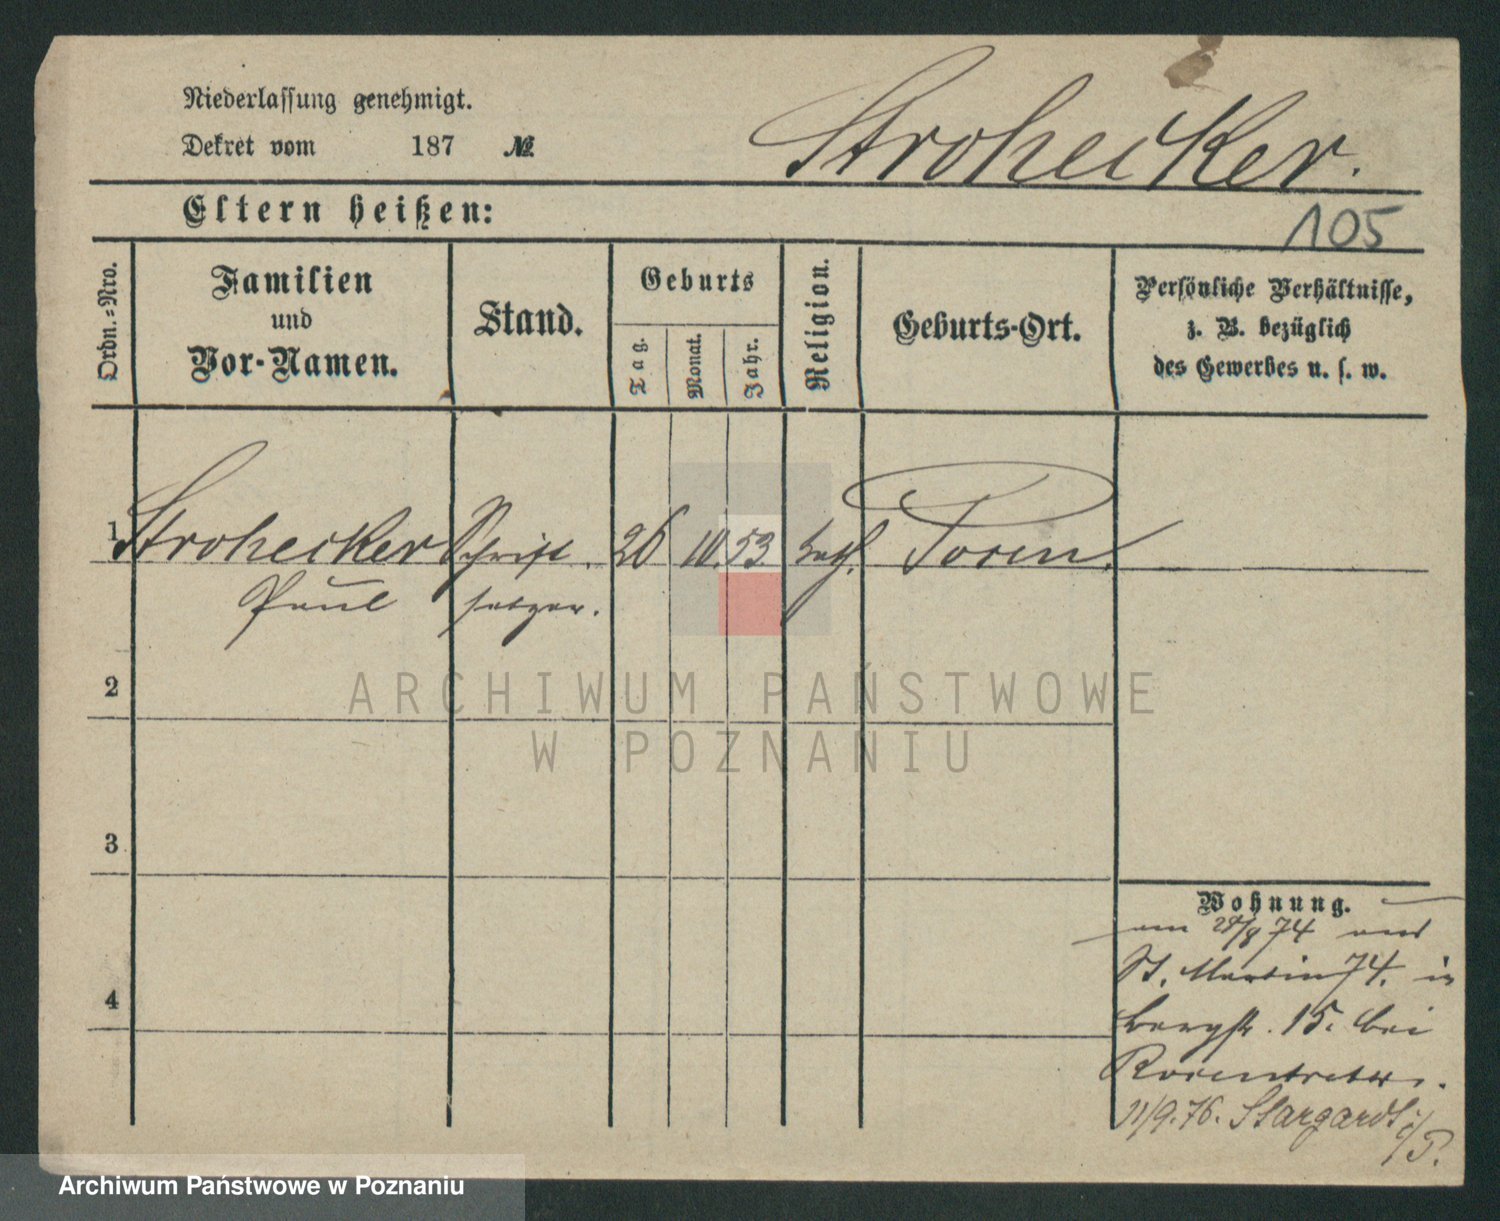 Niederlassung genehmigt.
Dekret vom 187 №
Strohecker.
Eltern heißen:
105
Ordn.-Nro.
Familien
und
Vor-Namen.
Stand.
Geburts
Tag.
Monat.
Jahr.
Religion.
Geburts-Ort.
Persönliche Verhältnisse,
z. B. bezüglich
des Gewerbes u. s. w.
1 Strohecker Schrift 26 10. 53. kath. Posen.
Paul setzer.
2
ARCHIWUM PAŃSTWOWE
W POZNANIU
3
Wohnung.
am 28/8 74 aus
St. Martin 74. in
Bergstr. 15. bei
Rosentreter.
11/9.76. Stargardt i/P.
4
Archiwum Państwowe w Poznaniu